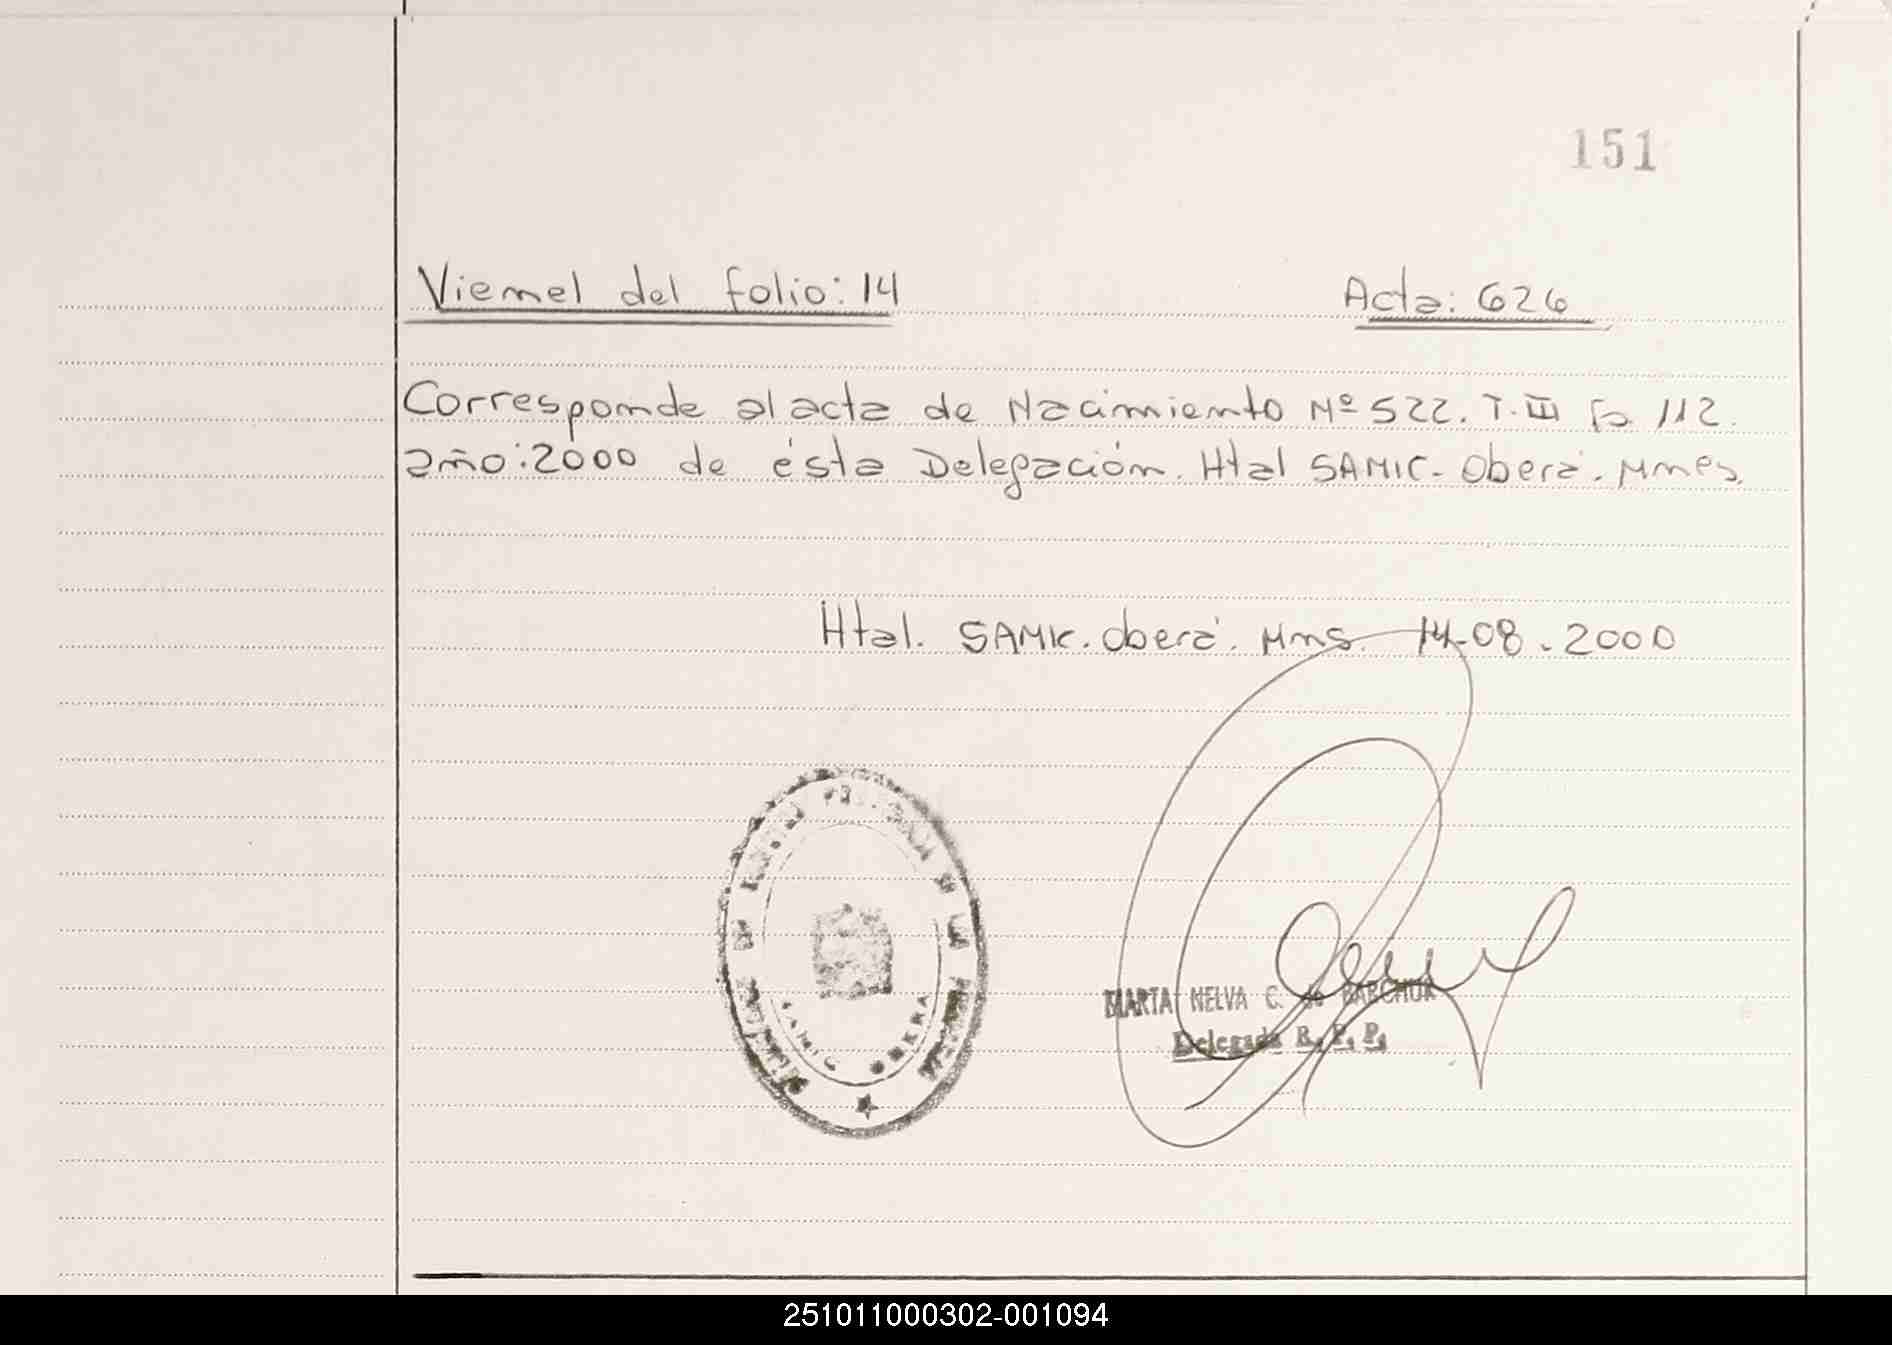 151
Viemel del folio: 14 Acta: 626
Corresponde al acta de Nacimiento Nº 522. T. III Fo 112.
año: 2000 de ésta Delegación. Htal SAMIC - Oberá. Mnes.
Htal. SAMIC. Oberá. Mns. 14-08.2000
SAMIC OBERA
MARTA NELVA C. de BARCHUK
Delegada R. P. P.
251011000302-001094